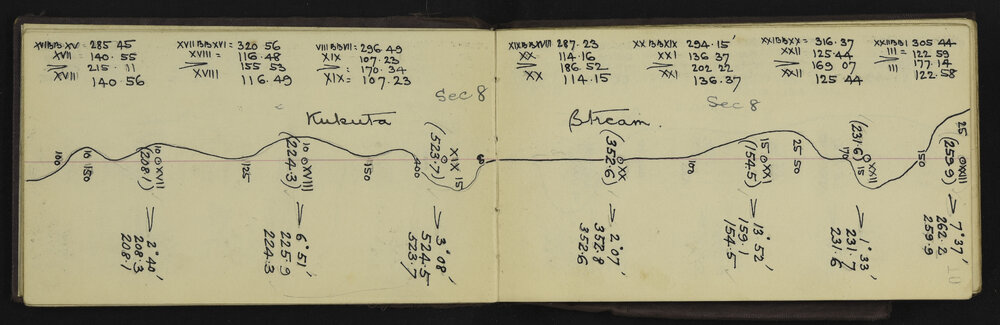 XVIIBBXV = 285 45
XVII = 140. 55
> = 215. 11
XVII 140 56
XVIIBBXVI = 320 56
XVII = 116.48
> = 155 53
XVIII 116.49
VIIIBBXVII = 296.49
XIX = 107.23
> = 170.34
XIX = 107.23
Sec 8
Kukuta
100
10
150
10 ⊙XVII
(208.1)
125
10 ⊙XVIII
(224.3)
150
400
(523.7)
XIX
⊙ 15
> 2° 40'
208.3
208.1
> 6° 51'
225.9
224.3
> 3° 08'
524.5
523.7
XIXBBXVIII 287.23
XX 114.16
> 186 52
XX 114.15
XXBBXIX 294.15'
XXI 136 37
> 202 22
XXI 136.37
XXIBBXX = 316.37
XXII 125 44
> 169 07
XXII 125 44
XXIIBBI 305 44
III = 122 59
> 177.14
III 122.58
Sec 8
Stream.
⊙XX
(352.6)
100
15 ⊙XXI
(154.5)
25
50
(231.6)
170
⊙XXII
15
150
25
⊙XXIII
(259.9)
> 2° 07'
352.8
352.6
> 13° 52'
159.1
154.5
> 1° 33'
231.7
231.6
> 7° 37'
262.2
259.9